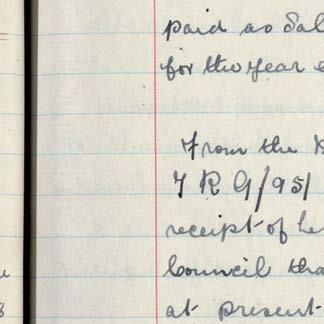 paid as Sal
for the year e
From the
T R G/951
receipt of le
Council tha
at present
8